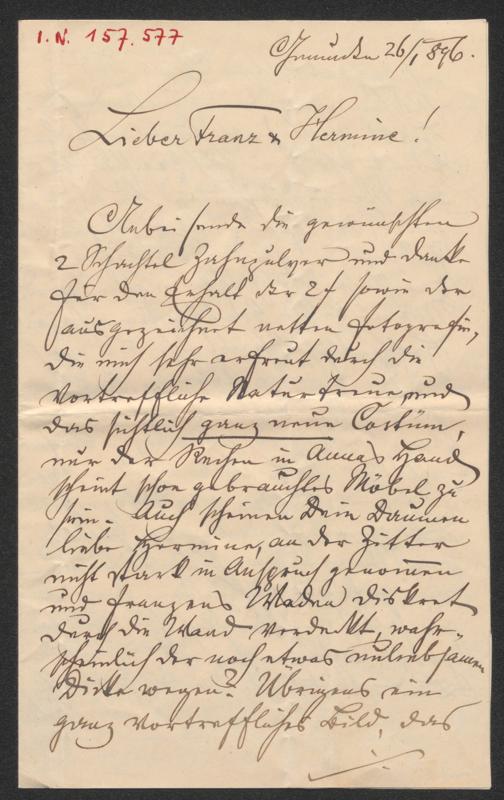 I.N. 157.577
Gmunden 26/1 896.
Lieber Franz & Hermine!
Anbei sende die gewünschten
2 Schachtel Zahnpulver und danke
für den Erhalt der 2 f sowie der
ausgezeichnet netten Fotografie,
die mich sehr erfreut durch die
vortreffliche Naturtreue, und
das sichtlich ganz neue Costüm,
nur der Rechen in Annas Hand
scheint schon gebrauchtes Möbel zu
sein. Auch scheinen Dein Daumen
liebe Hermine, an der Zitter
nicht stark in Anspruch genommen
und Franzens Waden diskret
durch die Wand verdeckt, wahr-
scheinlich der noch etwas unliebsamen
Dicke wegen? Übrigens ein
ganz vortreffliches Bild, das